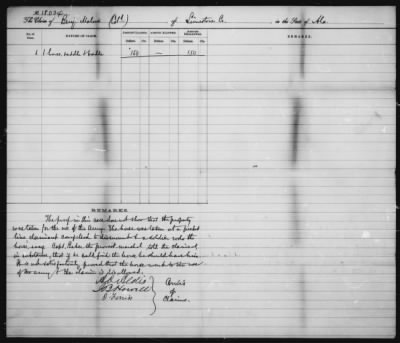 The Claim of Benj. Malone (Col.) of Limestone Co. in the State of Ala.
No. of Item. NATURE OF CLAIM. AMOUNT CLAIMED. AMOUNT ALLOWED. AMOUNT DISALLOWED. REMARKS.
Dollars. Cts. Dollars. Cts. Dollars. Cts.
1 1 horse, saddle & bridle 150 — 150
REMARKS.
The proof in this case does not show that the property
was taken for the use of the army. The horse was taken at a picket
line claimant compelled to dismount & a soldier rode the
horse away. Capt. the provost marshal told the claimant
that if he could find the horse he should have him.
It is not satisfactorily proved that the horse went to the use
of the army & the claim is disallowed.
A. O. Aldis
J. B. Howell
O. Ferriss
Com'rs
of
Claims.